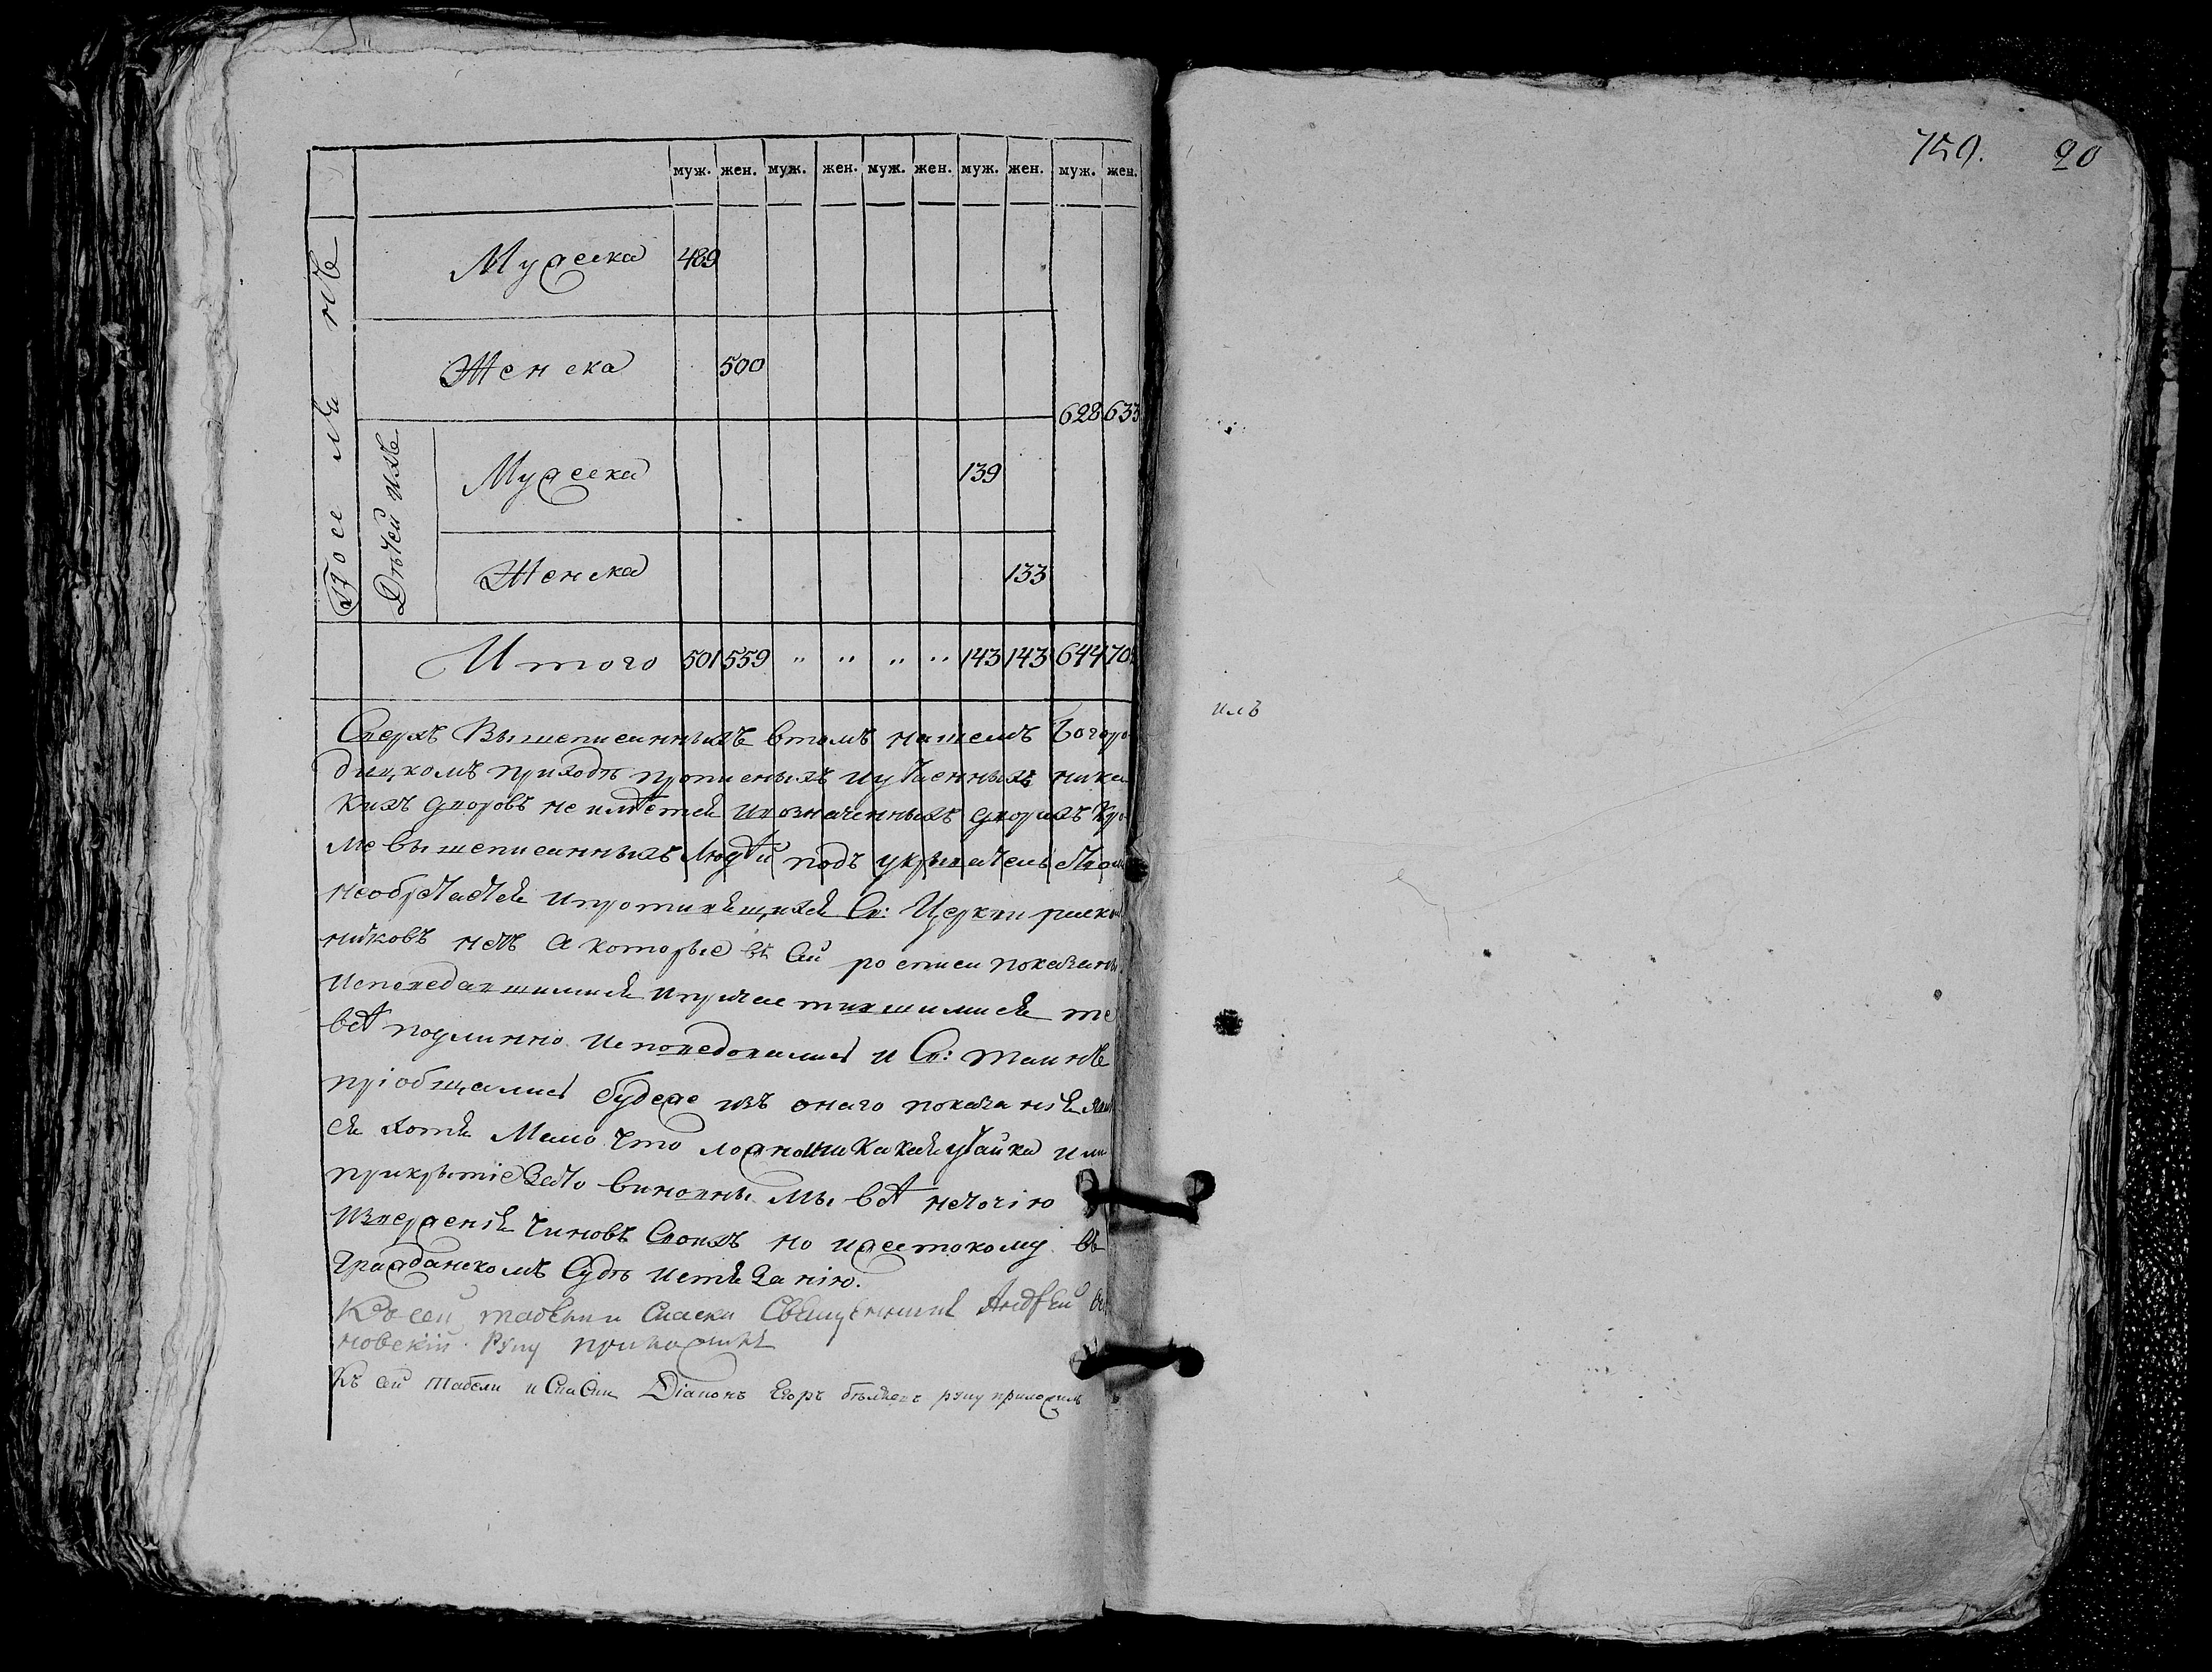 759. 20
муж. жен. муж. жен. муж. жен. муж. жен. муж. жен.
Мужска 489
Женска 500
628 633
Поселяне
Дѣтей ихъ
Мужска 139
Женска 133
Итого 501 559 " " " " 143 143 644 70
Сверхъ Вышеписанныхъ втомъ нашемъ Богоро
дицкомъ приходѣ прописныхъ иутаенныхъ ника
кихъ дворовъ не имѣется ивозначенныхъ дворахъ Кро
ме вышеписанныхъ Людѣй подъ укрывательством
необрѣтается ипротивящихся Св: Церкви раско
никовъ нетъ а которые въ сей росписи показаны
Исповедавшимися ипричастившимися те
всѣ подлинно Исповедовались и Св: таинъ
пріобщались будеже изъ онаго показанія
ся хотя Мало что ложно или какая утайка или
прикрытіе Зато виновны Мы всѣ неточію
Изверженія Чиновъ Своихъ но ижестокому въ
Гражданскомъ Судѣ истязанію.
Ксей табели Священникъ Андрей
новскій Руку приложилъ
Къ сей табели и Діаконъ Егоръ руку приложилъ
илъ